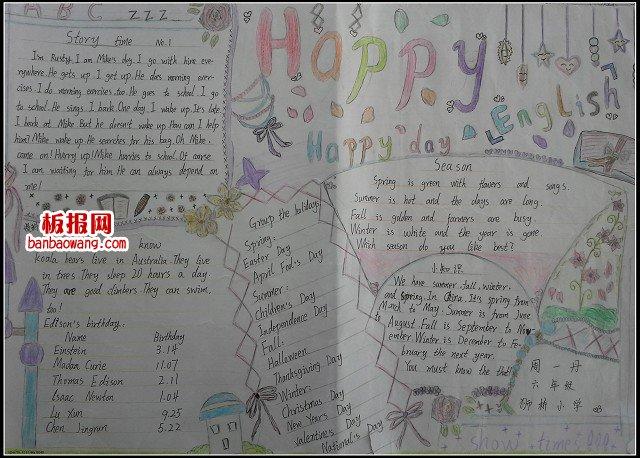 A B C ZZZ
Story time No.1
I'm Rusty. I am Mike's dog. I go with him eve-
rywhere. He gets up. I get up. He does morning exer-
cises. I do morning exercises, too. He goes to school. I go
to school. He sings. I bark. One day I wake up. It's late.
I bark at Mike. But he doesn't wake up. How can I help
him? Mike wake up. He searches for his bag. Oh Mike,
came on! Hurry up! Mike harries to school. Of carse
I am waiting for him. He can always depend on
me!
板报网
banbaowang.com
know
koala bears live in Australia. They live
in trees. They sleep 20 hours a day.
They are good climbers. They can swim,
too!
Edison's birthday:
Name Birthday
Einstein 3.14
Madam Curie 11.07
Thomas Edison 2.11
Isaac Newton 1.04
Lu Xun 9.25
Chen Jingrun 5.22
Happy
English
Happy day
Group the holidays
Spring:
Easter Day
April Fool's Day
Summer:
Children's Day
Independence Day
Fall:
Halloween
Thanksgiving Day
Winter:
Christmas Day
New Year's Day
Valentine's Day
National's Day
Season
Spring is green with flowers and songs.
Summer is hot and the days are long.
Fall is golden and farmers are busy.
Winter is white and the year is gone.
Which season do you like best?
小知识
We have summer, fall, winter.
and spring. In China. It's spring from
March to May. Summer is from June
to August. Fall is September to Nov-
ember. Winter is December to Fe-
bruary the next year.
You must know the that!
周一丹
六年级
柳树小学
show times